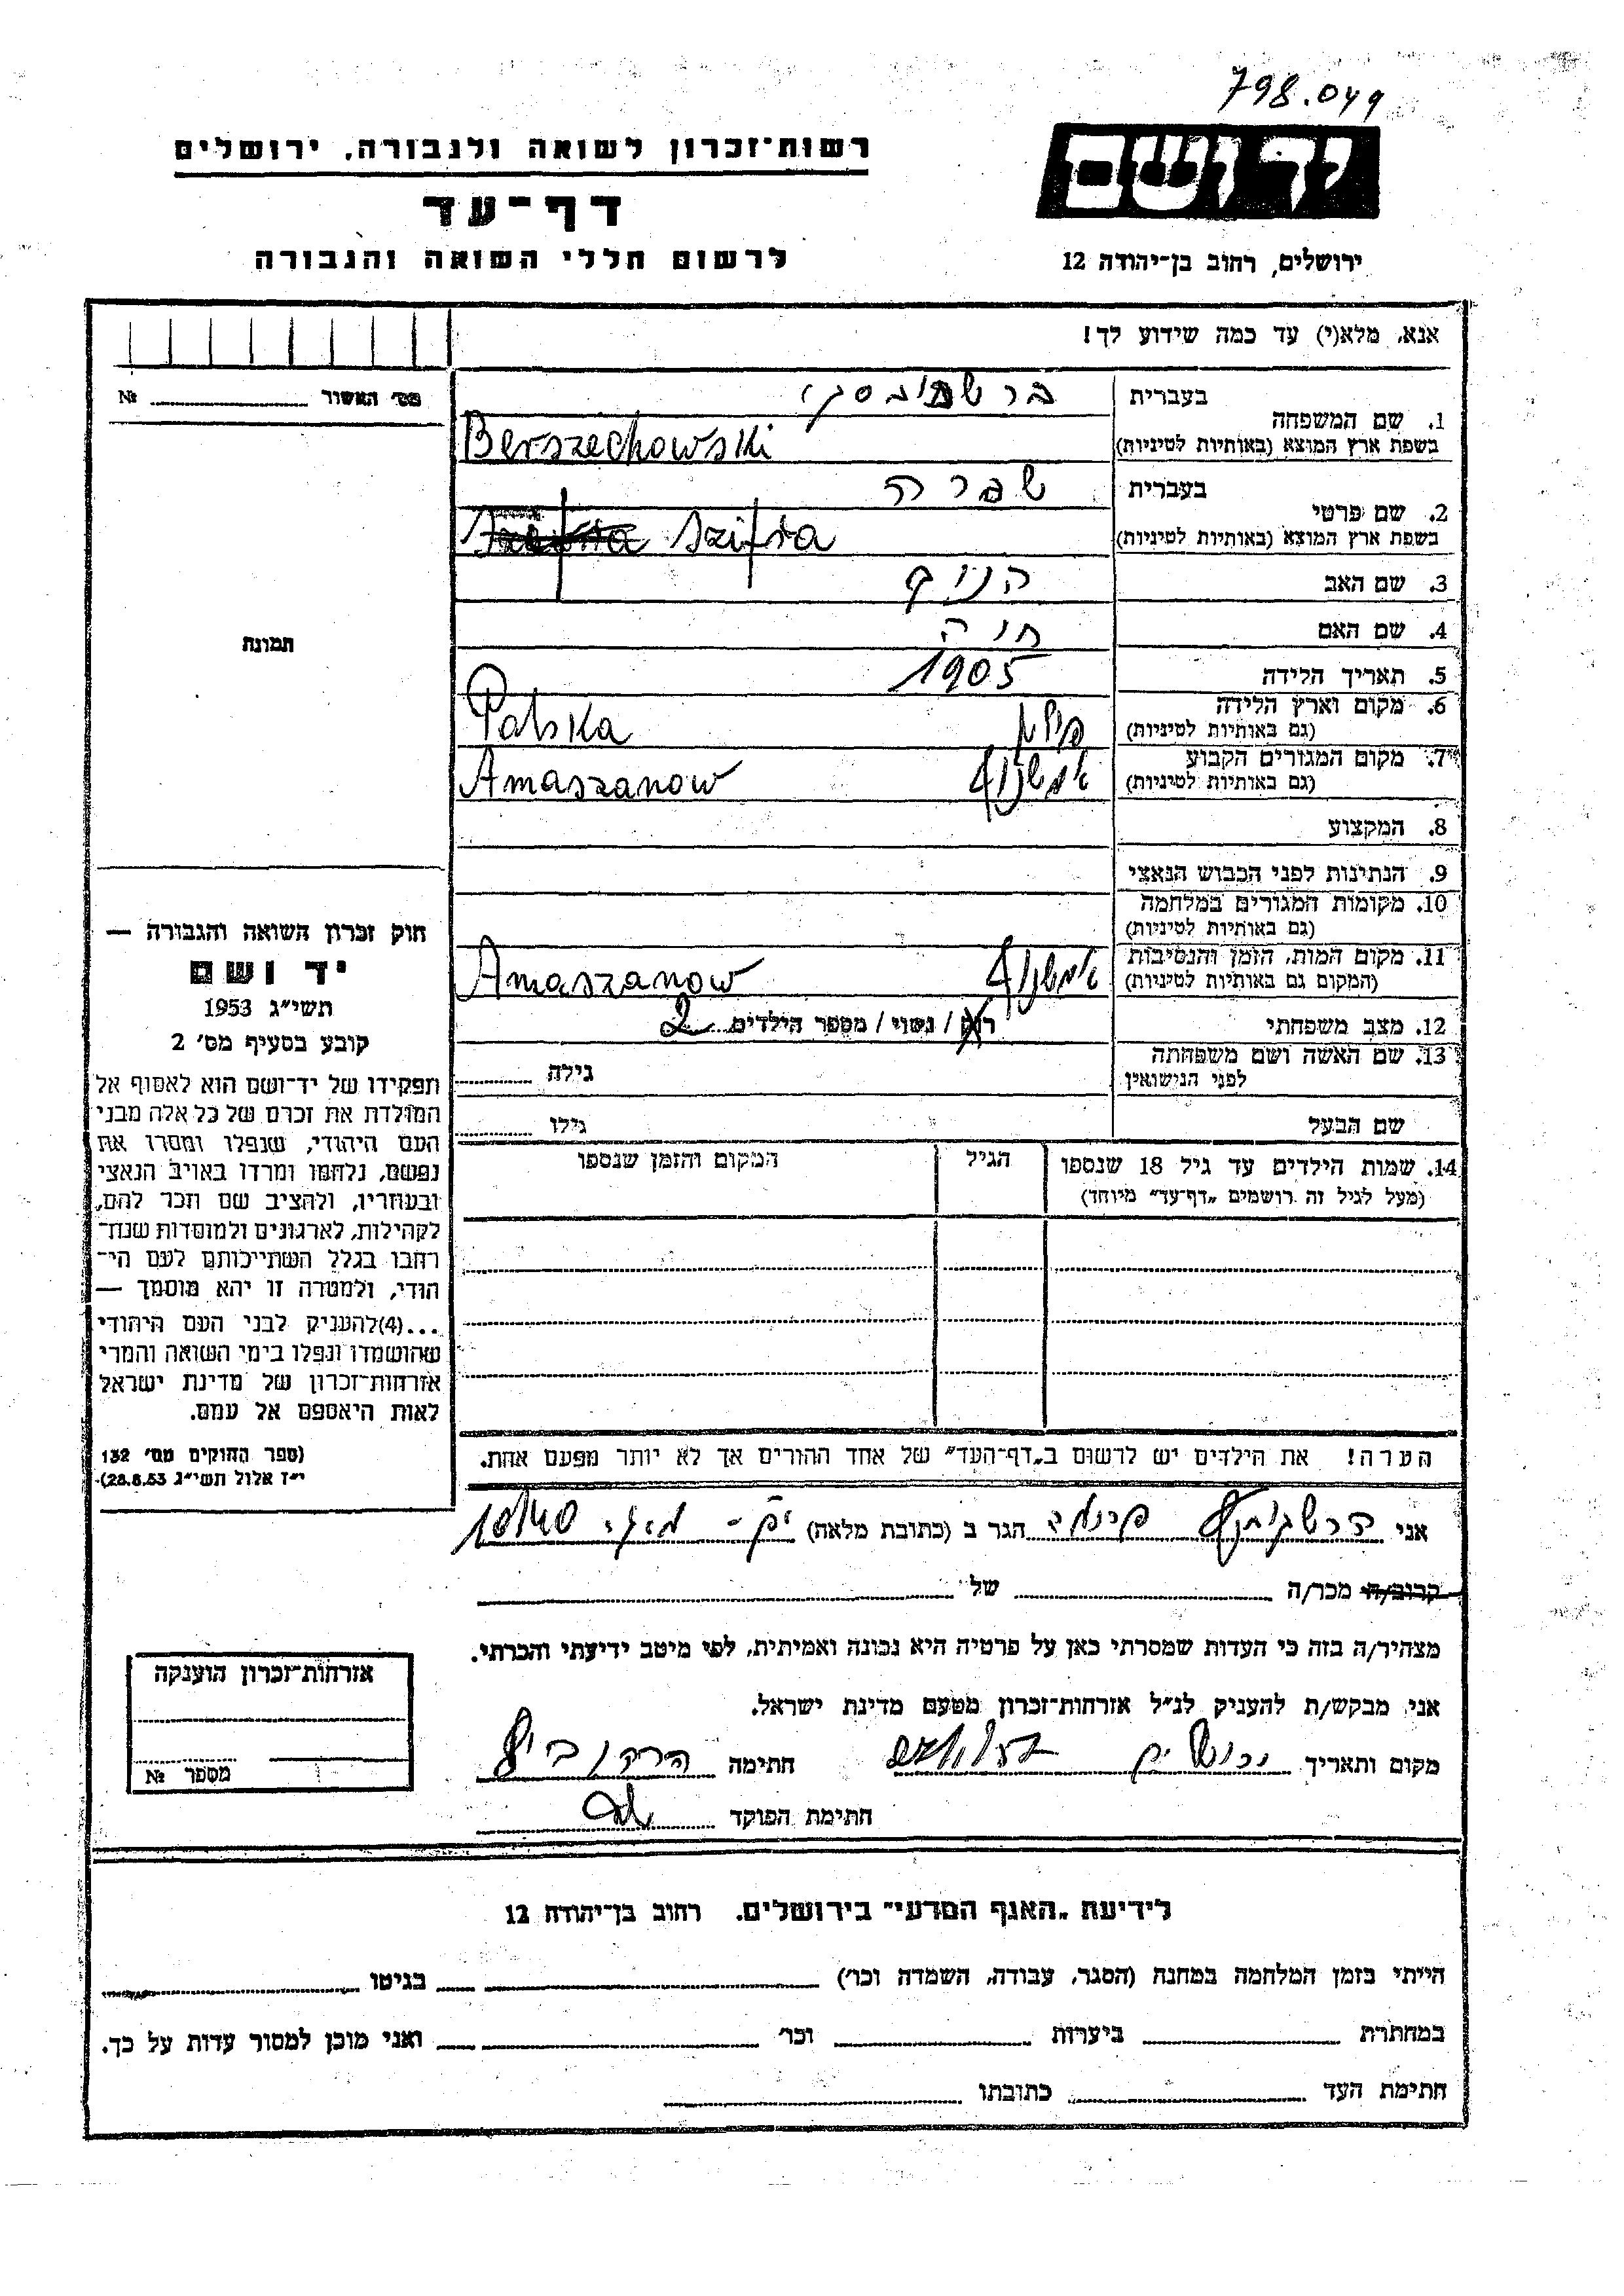 798.049
יד ושם
רשות־זכרון לשואה ולגבורה, ירושלים
דף־עד
לרשום חללי השואה והגבורה
ירושלים, רחוב בן־יהודה 12
אנא, מלא(י) עד כמה שידוע לך!
מס׳ האשור №
1. שם המשפחה
בעברית
בשפת ארץ המוצא (באותיות לטיניות) Berszechowski
2. שם פרטי
בעברית שפרה
בשפת ארץ המוצא (באותיות לטיניות) Szifra
3. שם האב הניך
4. שם האם חוה
5. תאריך הלידה 1905
6. מקום וארץ הלידה
(גם באותיות לטיניות) פולין Polska
7. מקום המגורים הקבוע
(גם באותיות לטיניות) Amaszanow
8. המקצוע
9. הנתינות לפני הכבוש הנאצי
10. מקומות המגורים במלחמה
(גם באותיות לטיניות)
11. מקום המות, הזמן והנסיבות
(המקום גם באותיות לטיניות) Amaszanow
12. מצב משפחתי רוק / נשוי / מספר הילדים 2
13. שם האשה ושם משפחתה
לפני הנישואין גילה
שם הבעל גילו
14. שמות הילדים עד גיל 18 שנספו הגיל המקום והזמן שנספו
(מעל לגיל זה רושמים „דף־עד״ מיוחד)
הערה! את הילדים יש לרשום ב„דף־העד״ של אחד ההורים אך לא יותר מפעם אחת.
תמונה
חוק זכרון השואה והגבורה —
יד ושם
תשי״ג 1953
קובע בסעיף מס׳ 2
תפקידו של יד־ושם הוא לאסוף אל
המולדת את זכרם של כל אלה מבני
העם היהודי, שנפלו ומסרו את
נפשם, נלחמו ומרדו באויב הנאצי
ובעוזריו, ולהציב שם וזכר להם,
לקהילות, לארגונים ולמוסדות שנח־
רבו בגלל השתייכותם לעם הי־
הודי, ולמטרה זו יהא מוסמך —
...(4) להעניק לבני העם היהודי
שהושמדו ונפלו בימי השואה והמרי
אזרחות־זכרון של מדינת ישראל
לאות היאספם אל עמם.
(ספר החוקים מס׳ 132
י״ז אלול תשי״ג 28.8.53)
אני הגר ב (כתובת מלאה)
קרוב/ה מכר/ה של
מצהיר/ה בזה כי העדות שמסרתי כאן על פרטיה היא נכונה ואמיתית, לפי מיטב ידיעתי והכרתי.
אני מבקש/ת להעניק לנ״ל אזרחות־זכרון מטעם מדינת ישראל.
מקום ותאריך חתימה
חתימת הפוקד
אזרחות־זכרון הוענקה
מספר №
לידיעת „האגף המדעי״ בירושלים. רחוב בן־יהודה 12
הייתי בזמן המלחמה במחנה (הסגר, עבודה, השמדה וכו׳) בגיטו
במחתרת ביערות וכו׳ ואני מוכן למסור עדות על כך.
חתימת העד כתובתו